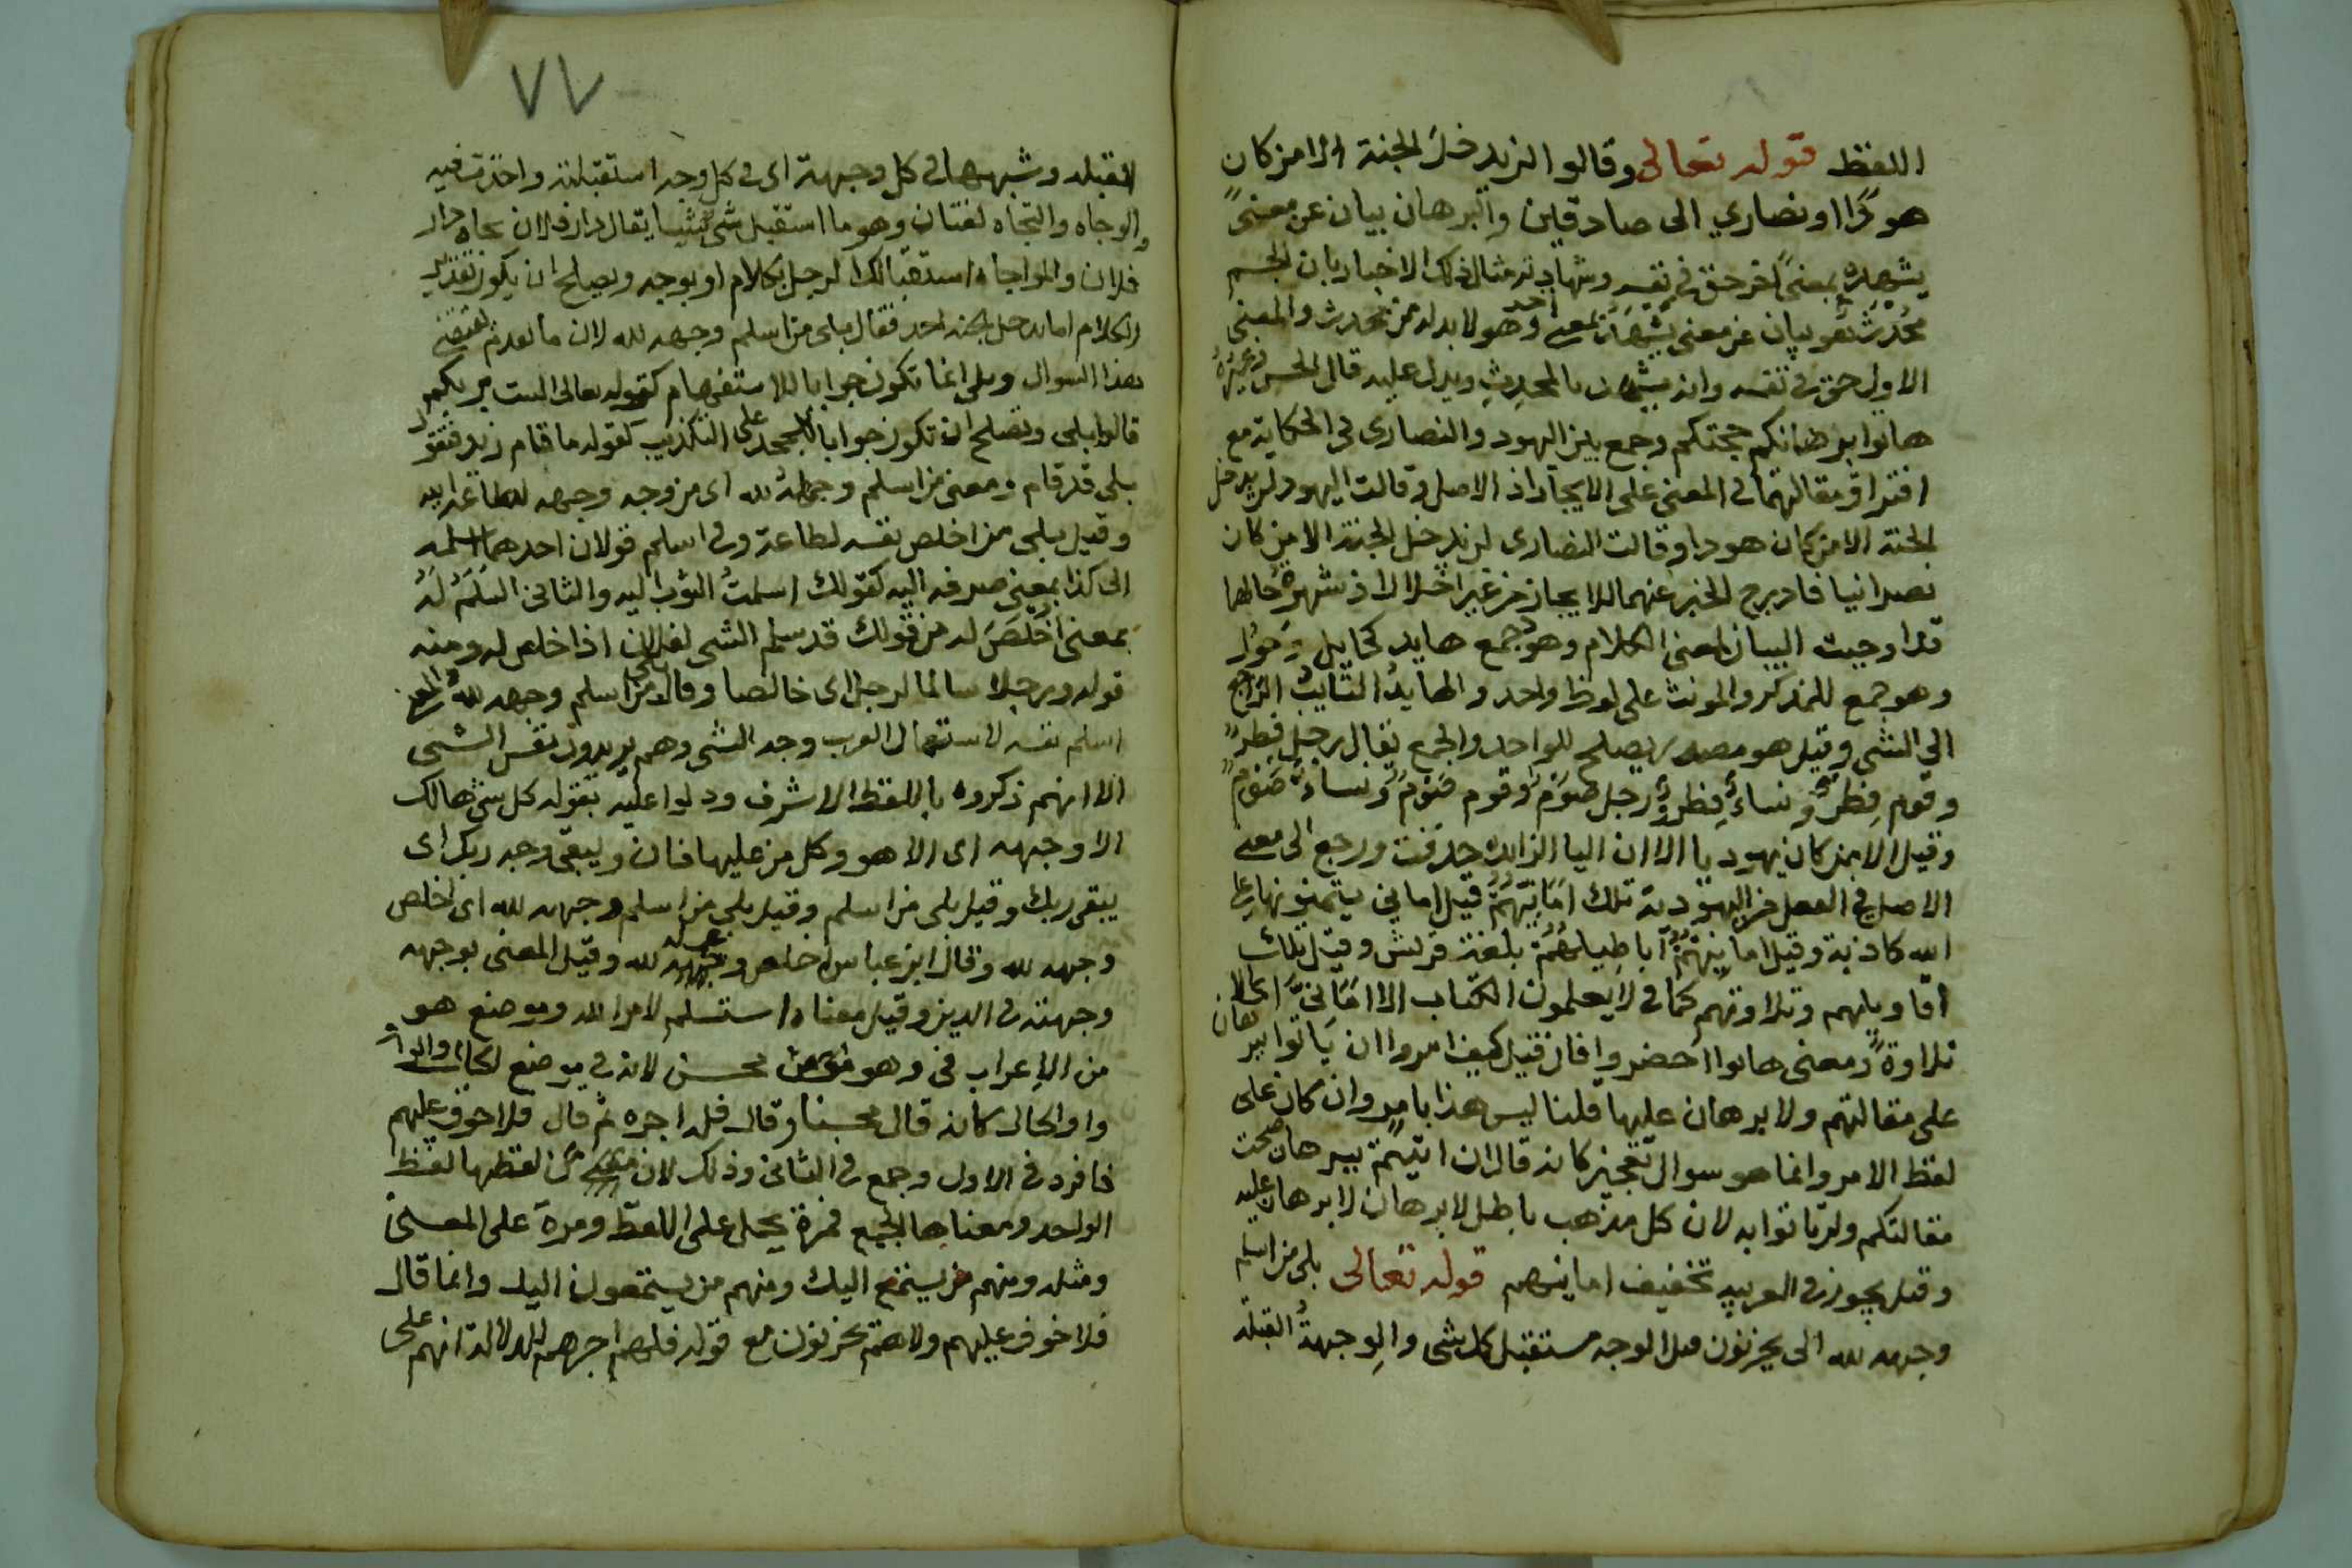 اللفظ قوله تعالى وقالوا لن يدخل الجنة الا من كان
هودًا او نصاري الى صادقين والبرهان بيان عن معنىً
يشهد بمعنىً اخر حق في نفسه وشهادته مثال ذلك الاخبار بان الجسم
محدث هو بيان عن معنى يشهد بمعنى احد وهو لا بد له من محدث والمعنى
الاول حق في نفسه وانه يشهد بالمحدِث ويدل عليه قال الحسن وغيره
هاتوا برهانكم حجتكم وجمع بين اليهود والنصارى في الحكاية مع
افتراق مقالتهما في المعنى على الايجاز اذ الاصل وقالت اليهود لن يدخل
الجنة الا من كان هودا وقالت النصارى لن يدخل الجنة الا من كان
نصرانيا فادرج الخبر عنهما للايجاز من غير اخلال اذ شهرة حالها
قد اوجبت البيان لمعنى الكلام وهود جمع هايد كحايل وحُول
وهو جمع للمذكر والمونث على لوظ واحد والهايدُ التايبُ الراجع
الى الشى وقيل هو مصدر يصلح للواحد والجمع يقال رجل فِطرٌ
وقوم فِطرٌ ونساءٌ فِطرٌ ورجل صَوْم وقوم صَوْم ونساء صَوْمٌ
وقيل الا من كان يهوديا الا ان اليا الزايده حذفت ورجع الى معنى
الاصل في الفعل من اليهودية تلك امَانيّهُم قيل اماني يتمنونها على
الله كاذبة وقيل امانيّهُمْ اباطيلهُم بلغة قريش وقيل تلك
اقاويلهم وتلاوتهم كما في لا يعلمون الكتاب الا امَانيّ اى الا
تلاوةً ومعنى هاتوا احضروا فان قيل كيف امروا ان يَاتوا ببرهان
على مقالتهم ولا برهان عليها قلنا ليس هذا بامر وان كان على
لفظ الامر وانما هو سوال تعجيز كانه قال ان اتيتم ببرهان صحت
مقالتكم ولن ياتوا به لان كل مذهب باطل لا برهان لا برهان عليه
وقيل يجوز في العربيه تخفيف امانيهم قوله تعالى بلى من اسلم
وجهه لله الى يحزنون قيل الوجه مستقبل كل شى والوِجهةُ القبلة
٧٧
القبله وشبهها في كل وجهة اى في كل وجه استقبلته واخذت فيه
والوجاه والتجاه لغتان وهو ما استقبل شى شيئا يقال دار فلان تجاه دار
فلان والمواجاه استقبالك الرجل بكلام او بوجه ويصلح ان يكون تقدير
الكلام اما يدخل الجنه احد فقال بلى من اسلم وجهه لله لان ما تقدم يقتضى
هذا السوال وبلى انما تكون جوابا للاستفهام كقوله تعالى الست بربكم
قالوا بلى وتصلح ان تكون جوابا للجحد على التكذيب كقوله ما قام زيد فتقول
بلى قد قام ومعنى من اسلم وجهه لله اى من وجه وجهه لطاعة الله
وقيل بلى من اخلص نفسه لطاعة وفى اسلم قولان احدهما اسلمه
الى كذا بمعنى صرفه اليه كقولك اسلمتُ الثوب اليه والثاني اسلم له
بمعنى اخلَصَ له من قولك قد سلم الشى لفلان اذا خلص له ومنه
قوله ورجلا سالما لرجل اى خالصا وقال بلى من اسلم وجهه لله والمراد
اسلم نفسه لاستعمال العرب وجه الشى وهم يريدون نفس الشى
الا انهم ذكروه باللفظ الاشرف ودلوا عليه بقوله كل شى هالك
الا وجهه اى الا هو وكل من عليها فان ويبقى وجه ربك اى
يبقى ربك وقيل بلى من اسلم وقيل بلى من اسلم وجهه لله اى اخلص
وجهه لله وقال ابن عباس اخلص عمله لله وقيل المعنى بوجهه
وجهته في الدين وقيل معناه استسلم لامر الله وموضع هو
من الاعراب في وهو محسن لانه في موضع الحال والواو
واو الحال كانه قال محسنا وقال فله اجره ثم قال فلا خوف عليهم
فافرد في الاول وجمع في الثاني وذلك لان من لفظها لفظ
الواحد ومعناها الجمع فمرة يحمل على اللفظ ومرة على المعنى
ومثله ومنهم من يستمع اليك ومنهم من يستمعون اليك وانما قال
فلا خوف عليهم ولا هم يحزنون مع قوله فلهم اجرهم للدلالة انهم على